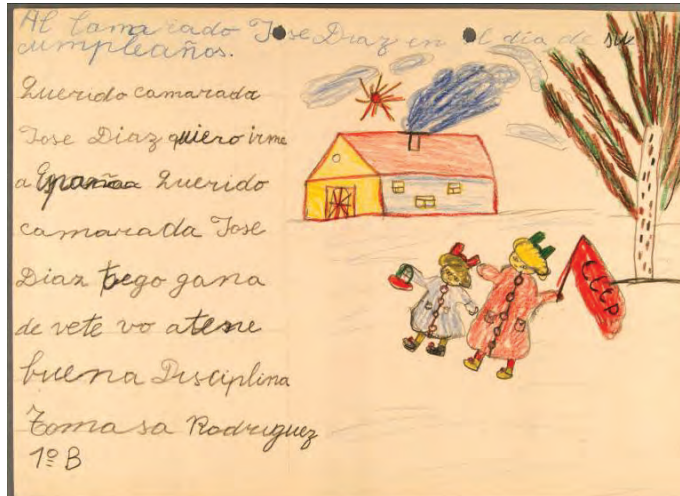 Al Camarado Jose Diaz en el dia de su
cumpleaños.
Querido camarada
Jose Diaz quiero irme
a España Querido
camarada Jose
Diaz tego gana
de vete vo atene
buena Disciplina
Tomasa Rodriguez
1º B
CCCP